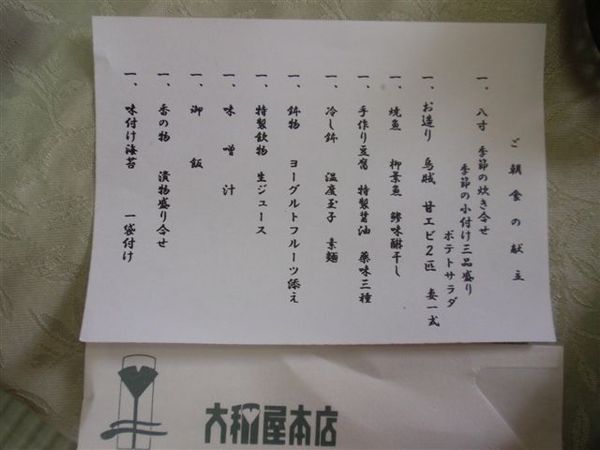 ご朝食の献立
一、八寸 季節の炊き合せ
季節の小付け三品盛り
ポテトサラダ
一、お造り 烏賊 甘エビ2匹 妻一式
一、焼魚 柳葉魚 鯵味醂干し
一、手作り豆腐 特製醤油 薬味三種
一、冷し鉢 温度玉子 素麺
一、鉢物 ヨーグルトフルーツ添え
一、特製飲物 生ジュース
一、味噌汁
一、御飯
一、香の物 漬物盛り合せ
一、味付け海苔 一袋付け
大和屋本店